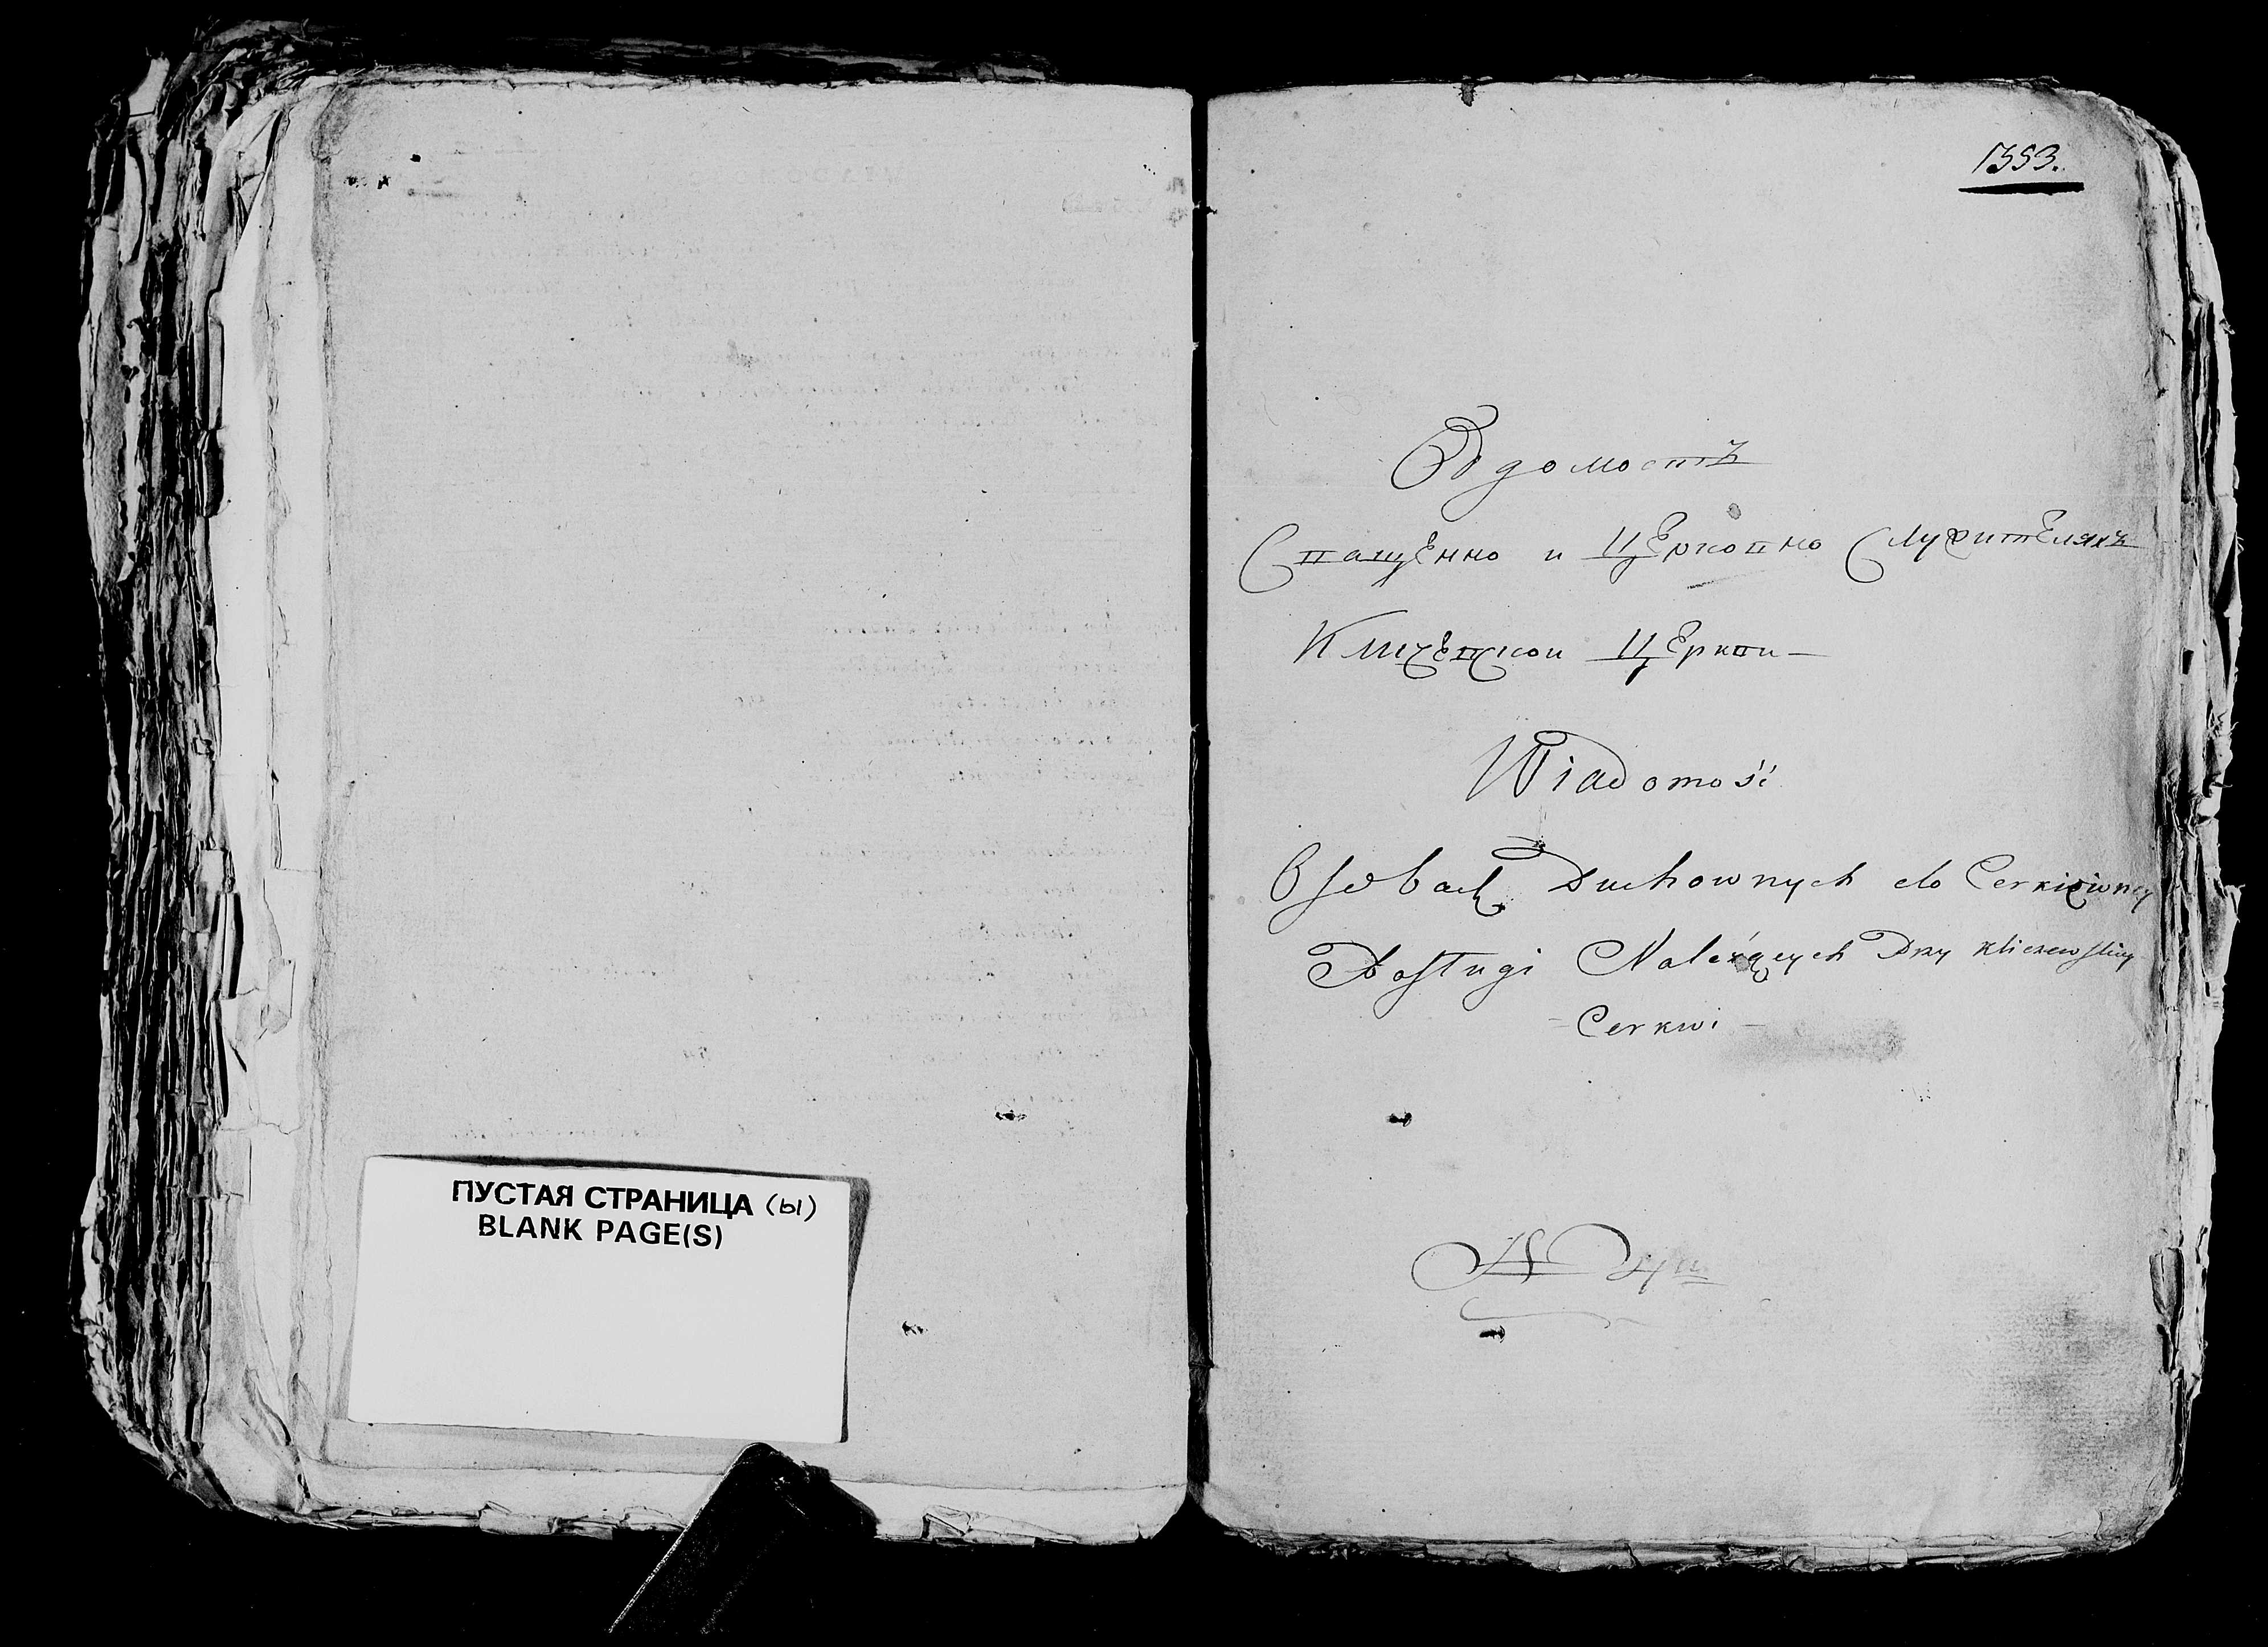 ПУСТАЯ СТРАНИЦА (ы)
BLANK PAGE(S)
1353.
Вѣдомость
Священно и Церковно Служителяхъ
Кличевской Церкви
Wiadomość
Osobach Duchownych do Cerkiewney
Posługi Należących Przy Kliczewskiey
Cerkwi